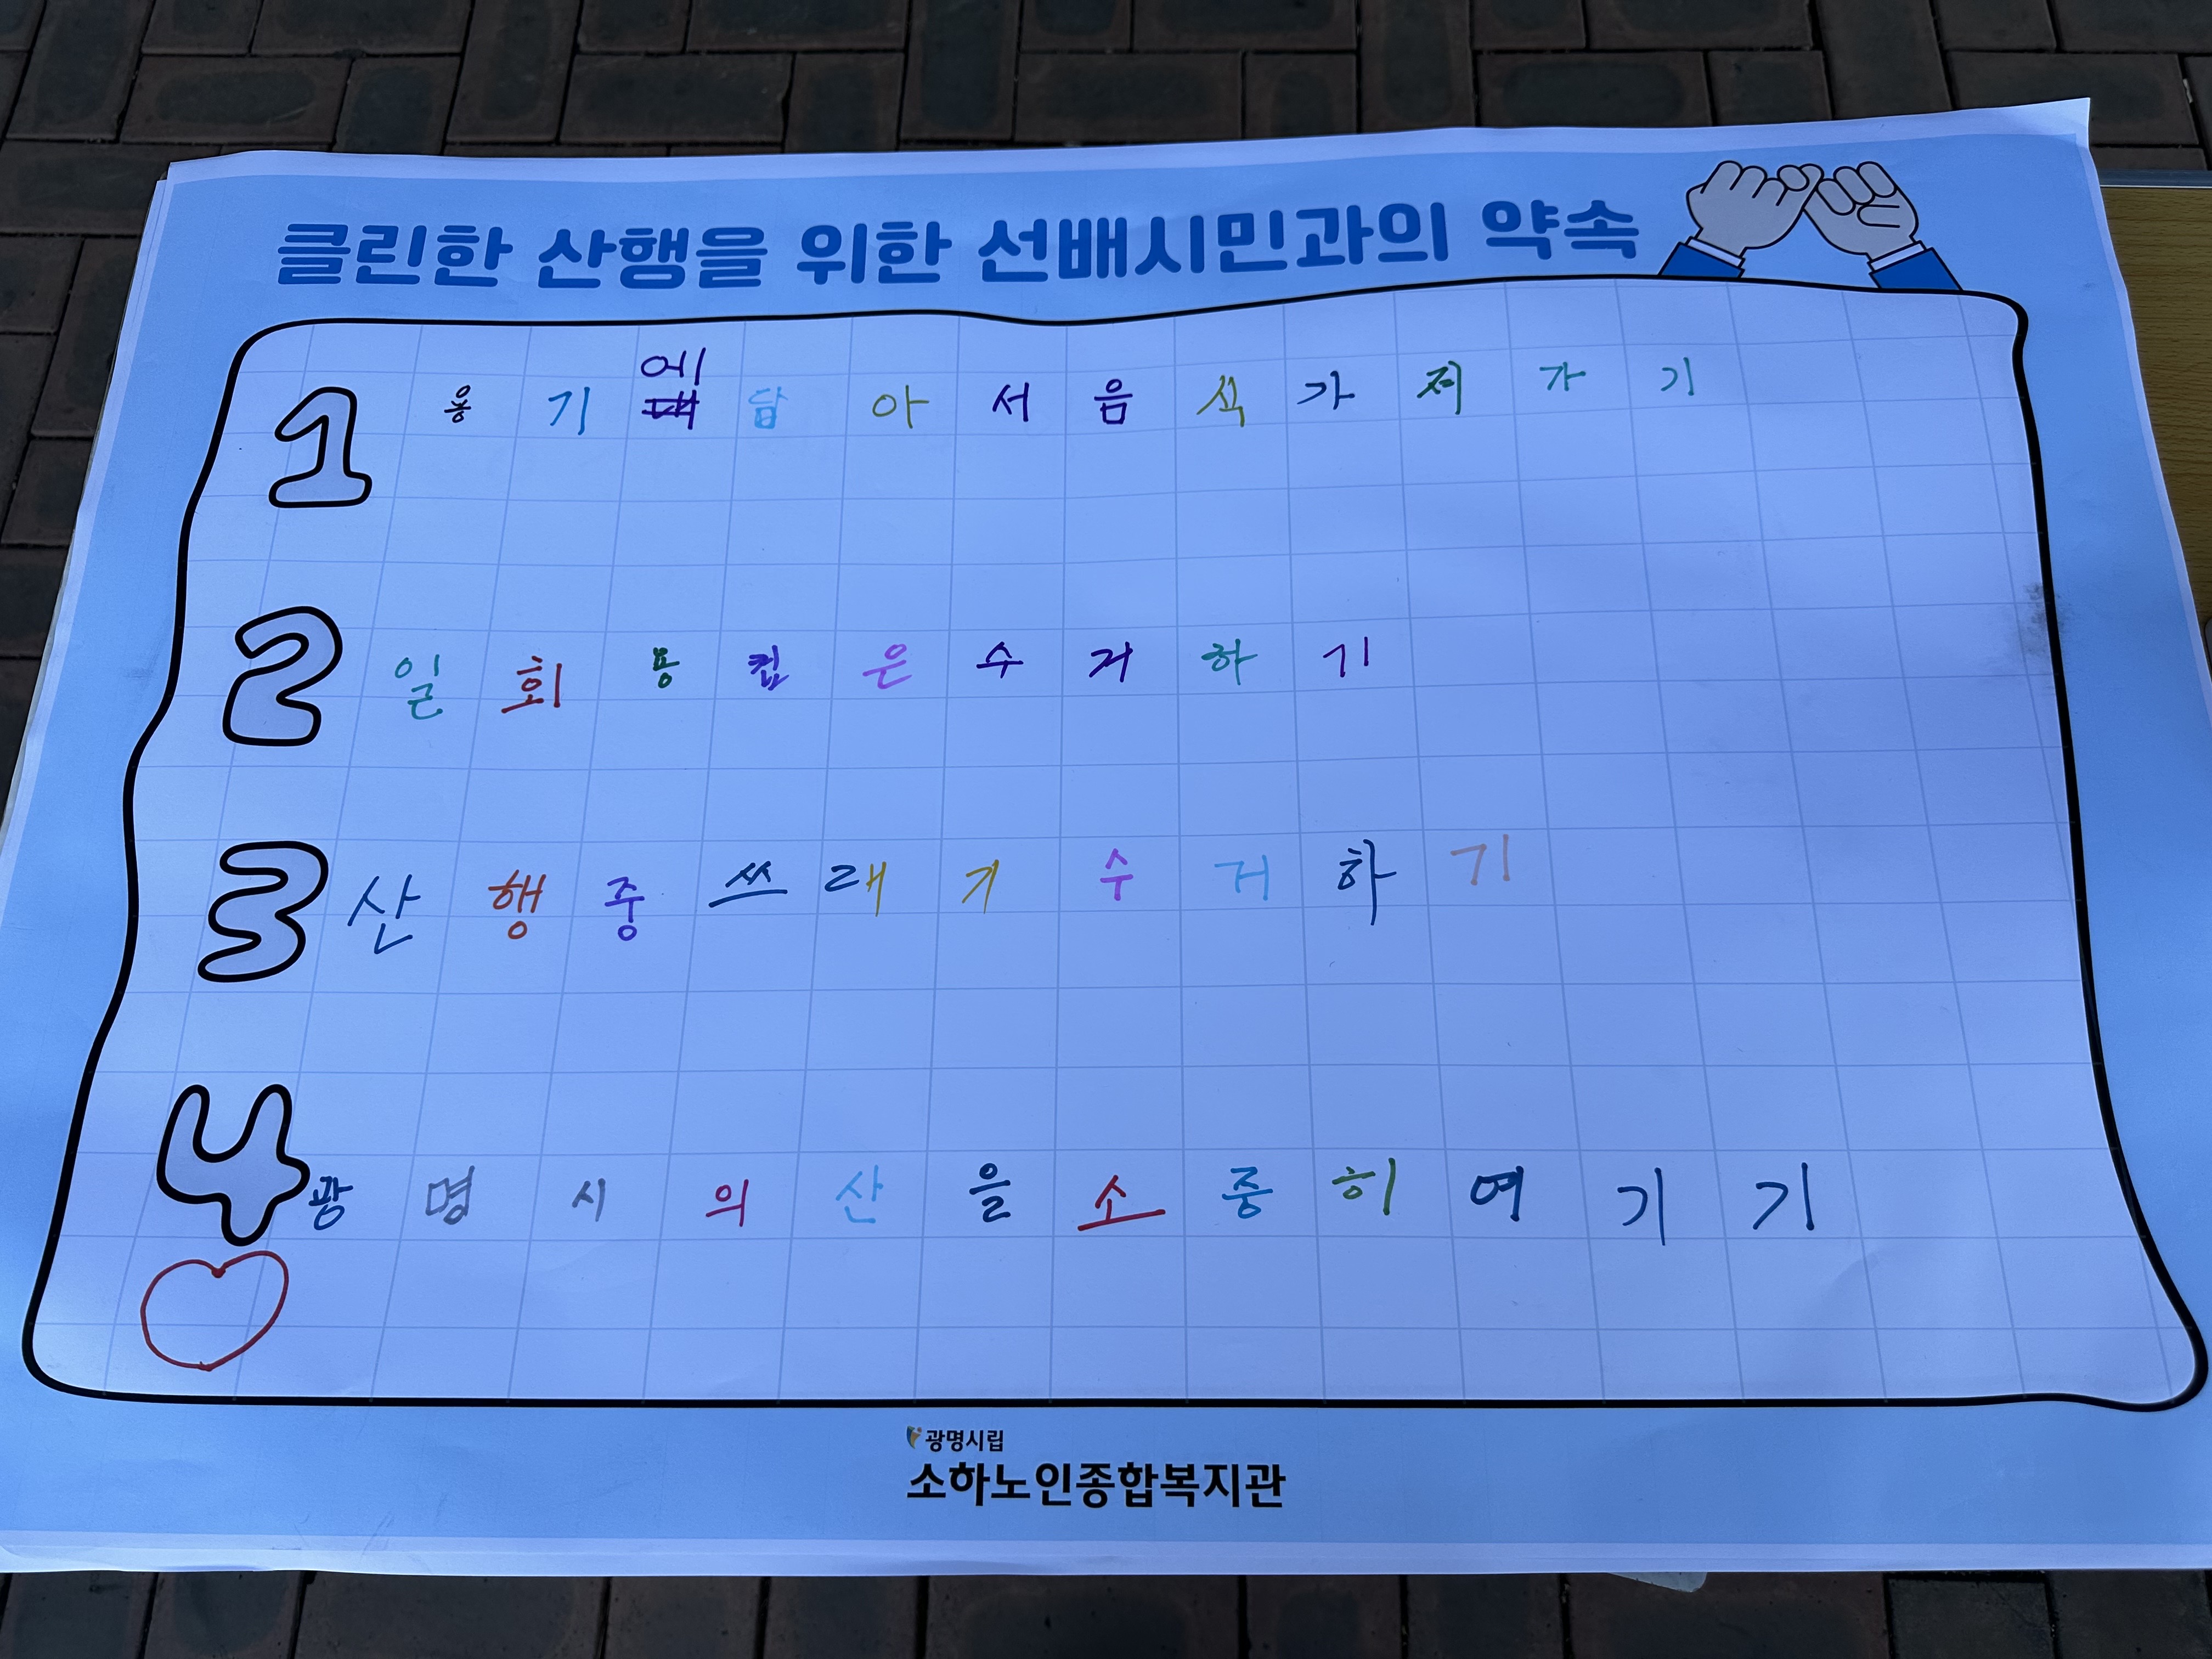 클린한 산행을 위한 선배시민과의 약속
1 용기에 담아서 음식 가져가기
2 일회용컵은 수거하기
3 산행중 쓰래기 수거하기
4 광명시의 산을 소중히 여기기
광명시립
소하노인종합복지관